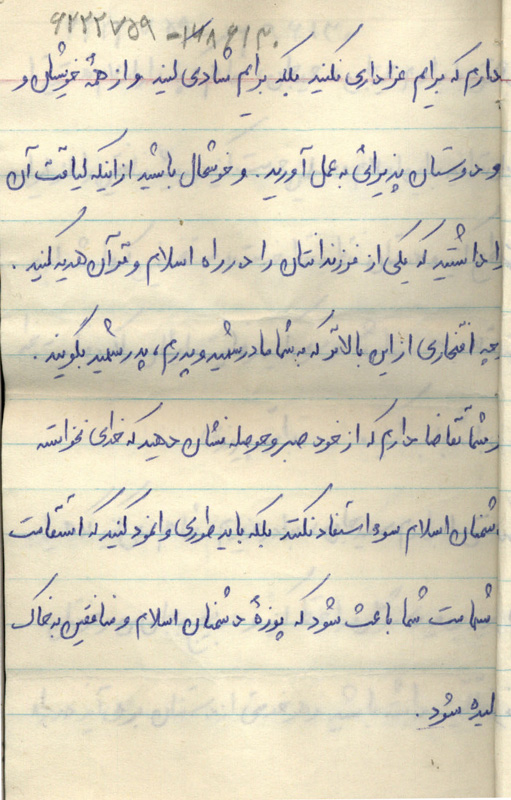 ۶۲۲۲۷۵۹ - ۱۳۸۶۱۳۰
دارم که برایم عزاداری نکنید بلکه برایم شادی کنید و از همهٔ خویشان و
و دوستان پذیرائی به عمل آورید. و خوشحال باشید از اینکه لیاقت آن
را داشتید که یکی از فرزندانتان را در راه اسلام و قرآن هدیه کنید.
چه افتخاری از این بالاتر که به شما مادر شهید و پدرم، پدر شهید بگویند.
شما تقاضا دارم که از خود صبر و حوصله نشان دهید که خدای نخواسته
شمنان اسلام سوء استفاده نکنند بلکه باید طوری وانمود کنید که استقامت
شهامت شما باعث شود که پوزهٔ دشمنان اسلام و منافقین به خاک
لیده شود.